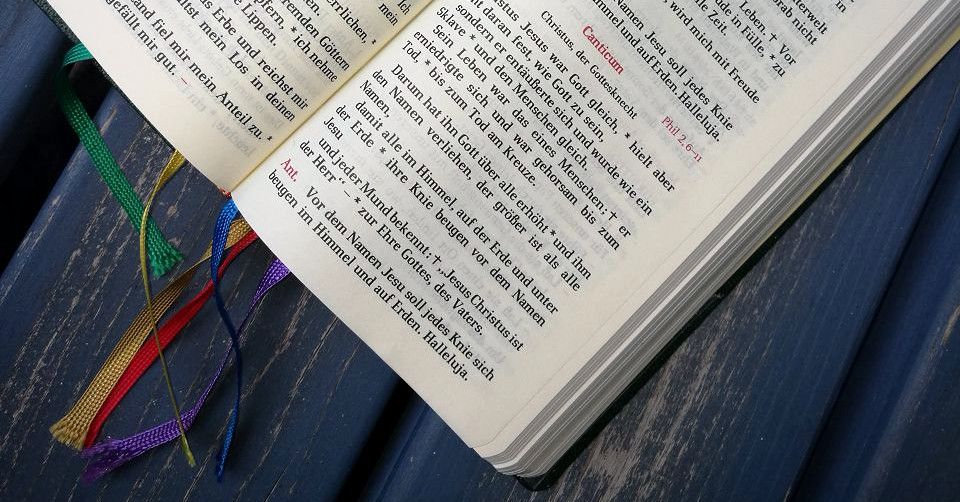 mein
errlichen, *
erenden Göttern
pfern, * ich nehme
e Lippen.
s Erbe und reichst mir
ltst mein Los in deinen
and fiel mir mein Anteil zu. *
gefällt mir gut. –
nterwelt
orab nicht
Leben. † Vor
ude in Fülle, * zu
le Zeit.
wird mich mit Freude
Namen Jesu soll jedes Knie
mmel und auf Erden. Halleluja.
Canticum Phil 2,6-11
Christus, der Gottesknecht
istus Jesus war Gott gleich, * hielt aber
ht daran fest, wie Gott zu sein,
sondern er entäußerte sich und wurde wie ein
Sklave * und den Menschen gleich.
Sein Leben war das eines Menschen; † er
erniedrigte sich und war gehorsam bis zum
Tod, * bis zum Tod am Kreuze.
Darum hat ihn Gott über alle erhöht * und ihm
den Namen verliehen, der größer ist als alle
Namen,
damit alle im Himmel, auf der Erde und unter
der Erde * ihre Knie beugen vor dem Namen
Jesu
und jeder Mund bekennt: † „Jesus Christus ist
der Herr“ – * zur Ehre Gottes, des Vaters.
Ant. Vor dem Namen Jesu soll jedes Knie sich
beugen im Himmel und auf Erden. Halleluja.